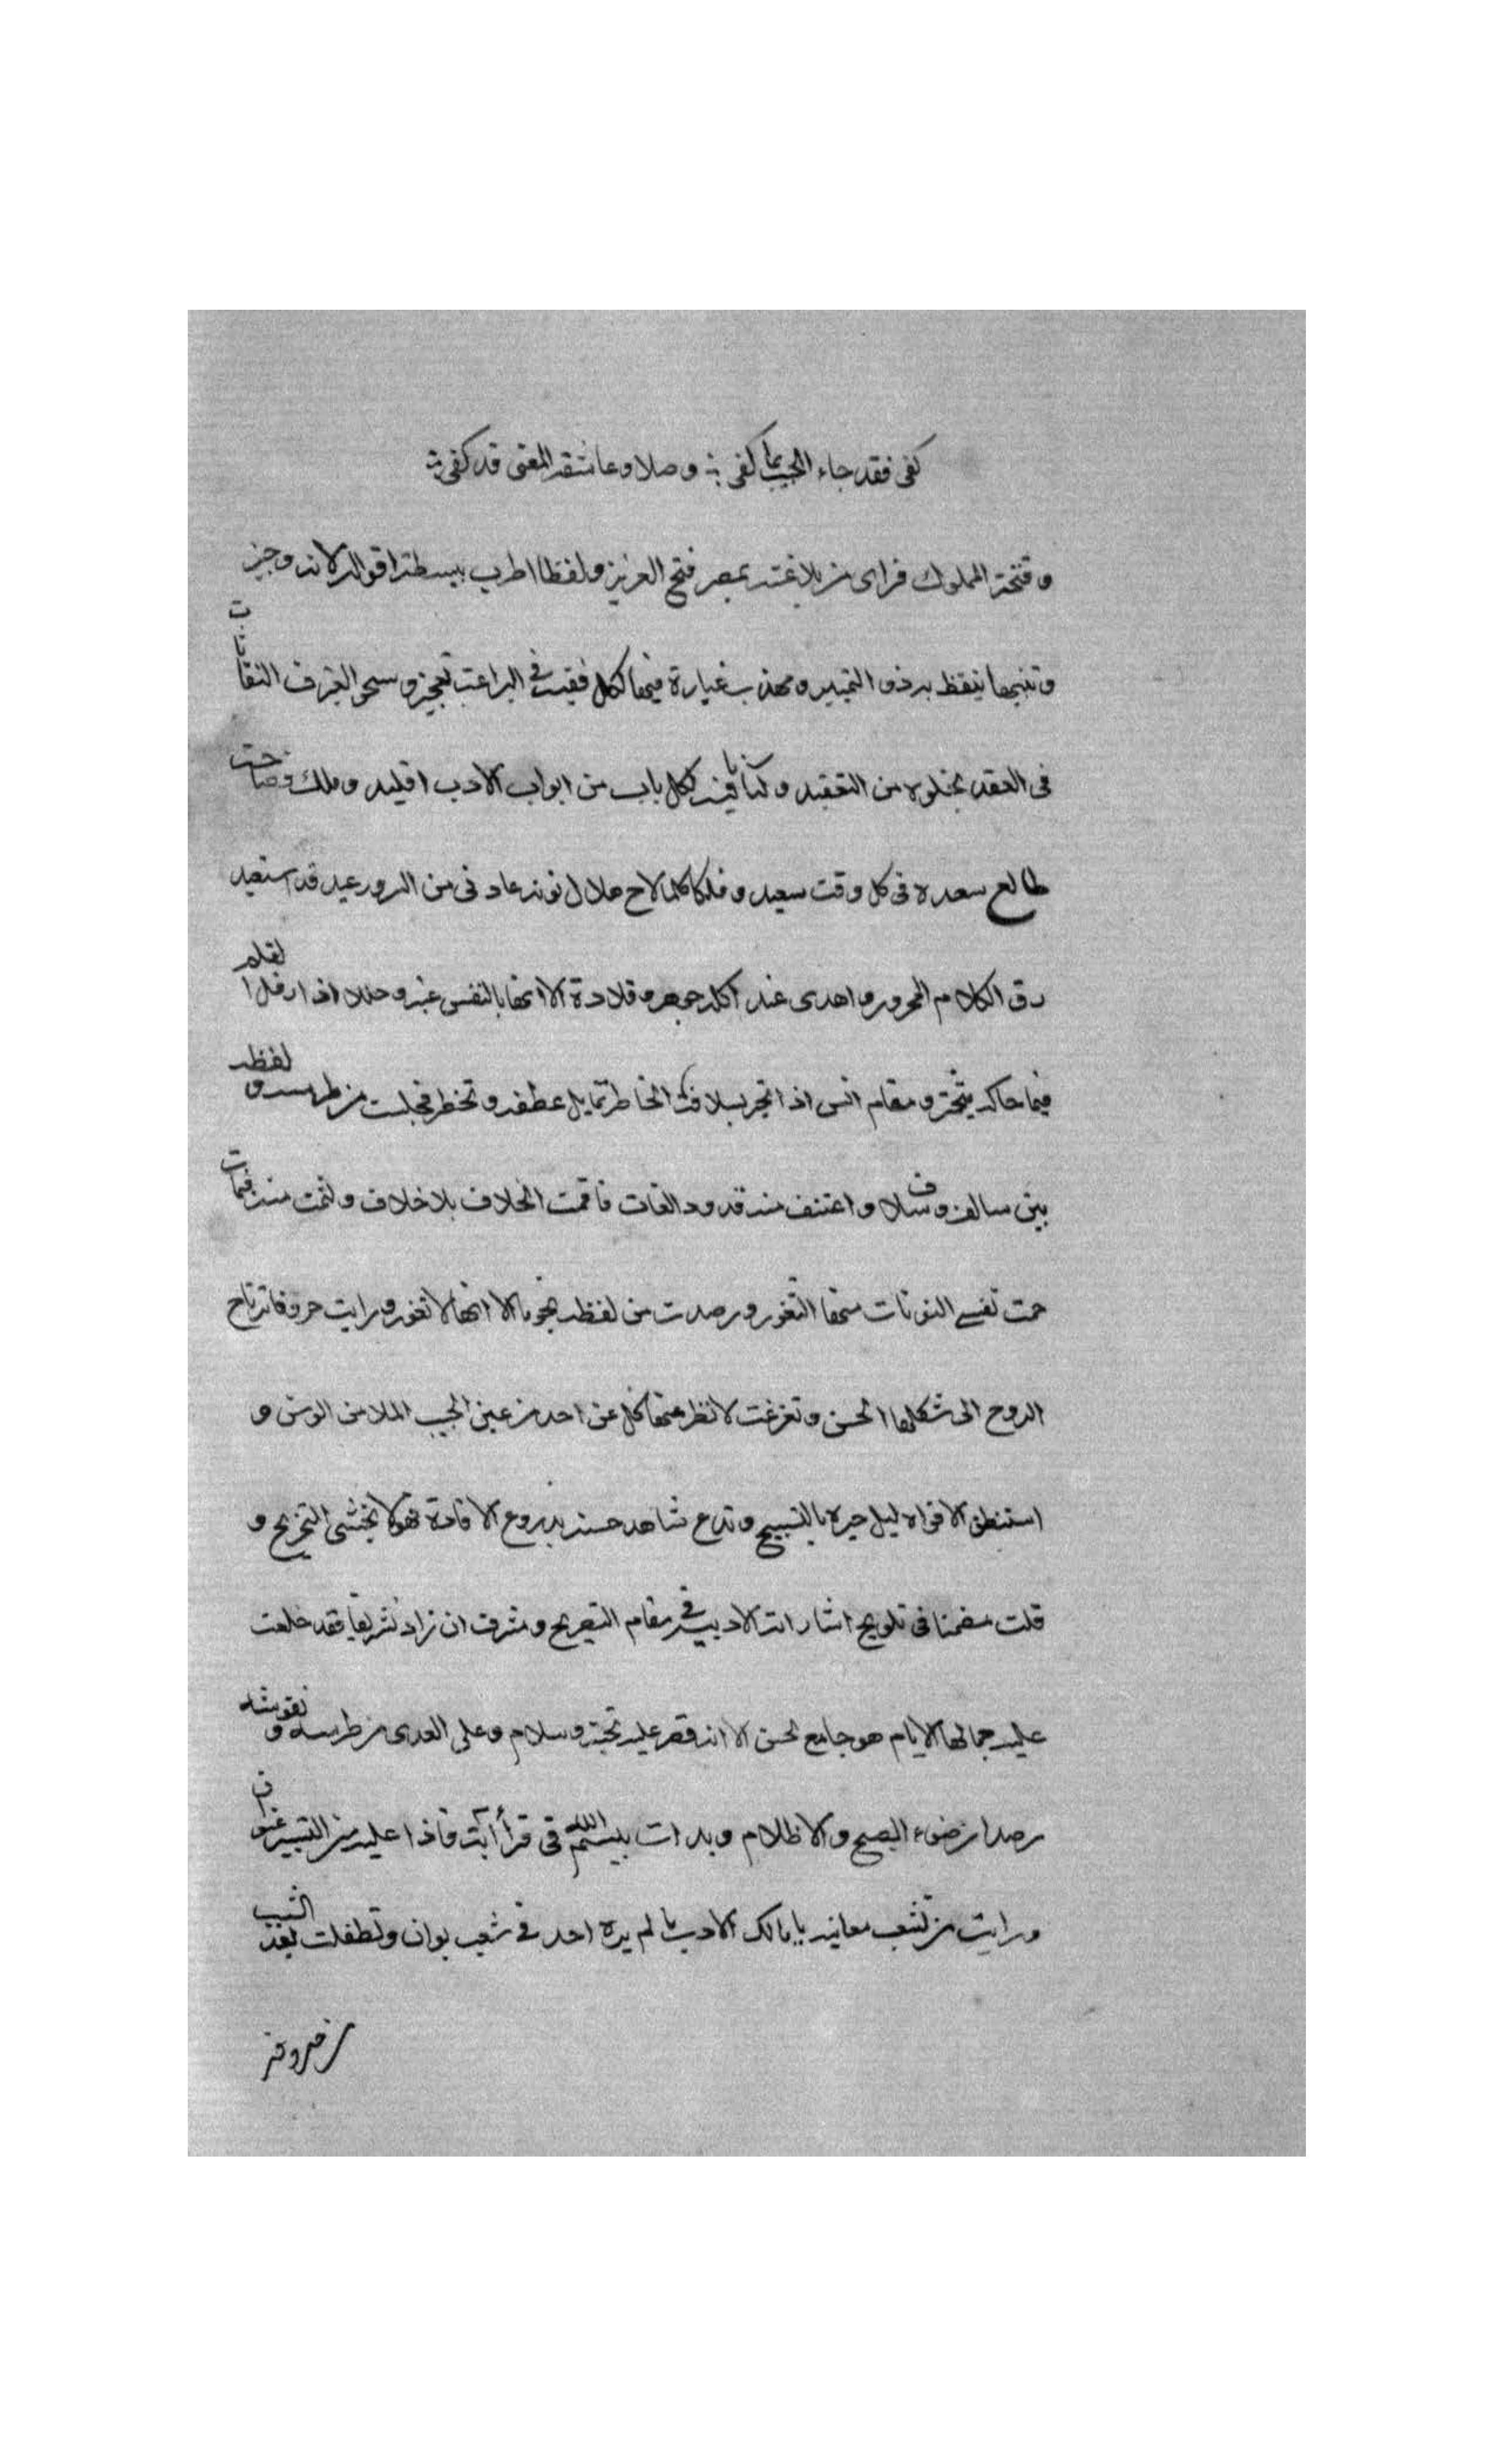 كفى فقد جاء الحبيب بما كفى وصلا وعاشقه المعنى قد كفى
وفتحه المملوك فراى من بلاغته بمصر فتح العزيز ولفظا اطرب ببسطة اقواله لانه وجيز
وتنبيها تيقظ به ذو التمييز ومهذب عبارة فيها لكل فقيه في البراعة تعجيز وسحر النفاثات
في العقد بخلوه من التعقيد وكتابا فيه لكل باب من ابواب الادب اقليد وملك فصاحة
طالع سعده في كل وقت سعيد وفلكا كلما لاح هلال نونه عادني من السرور عيد قد استعبد
رق الكلام المحرر واهدى عند اكله جوهر وقلادة الا انها بالنفس عنبر وحللا اذا رفل القلم
فيما حاكه يتبختر ومقام انس اذا اتجر بسلافة الخاطر تمايل عطفه وتخطر فجلت من طرسه ولفظه
بين سالف وسلاف واعتنف منه قدود الفات فاقمت الخلاف بلا خلاف ولثمت منه فيمات
حمت نفسي النونات منها الثغور ورصدت من لفظه نجوما الا انها لا تغور ورايت حروفا ترتاح
الروح الى شكلها الحسن وتفرغت لانظر منها كل عن احد من عين الحبيب الملا من الوسن و
استنطق الافواه ليل حبره بالتسبيح وتدرع شاهد حسنه بدروع الافادة فهو لا يخشى التجريح و
قلت مضمنا في تلويح اشاراته الادبية في مقام التصريح وشرف ان زاد تشريفا فقد خلعت
عليه جمالها الايام هو جامع لحسن الا انه قصر عليه تحية وسلام وعلى العدى من طرسه ونقوشه
رصدا من ضوء الصبح والاظلام وبدات ببسم الله في قرأ آيته فاذا عليه من التيسير عنوان
ورايت من شعب معانيه يا مالك الادب ما لم يره احد في شعب بوان وتطفلت بعد الشيب